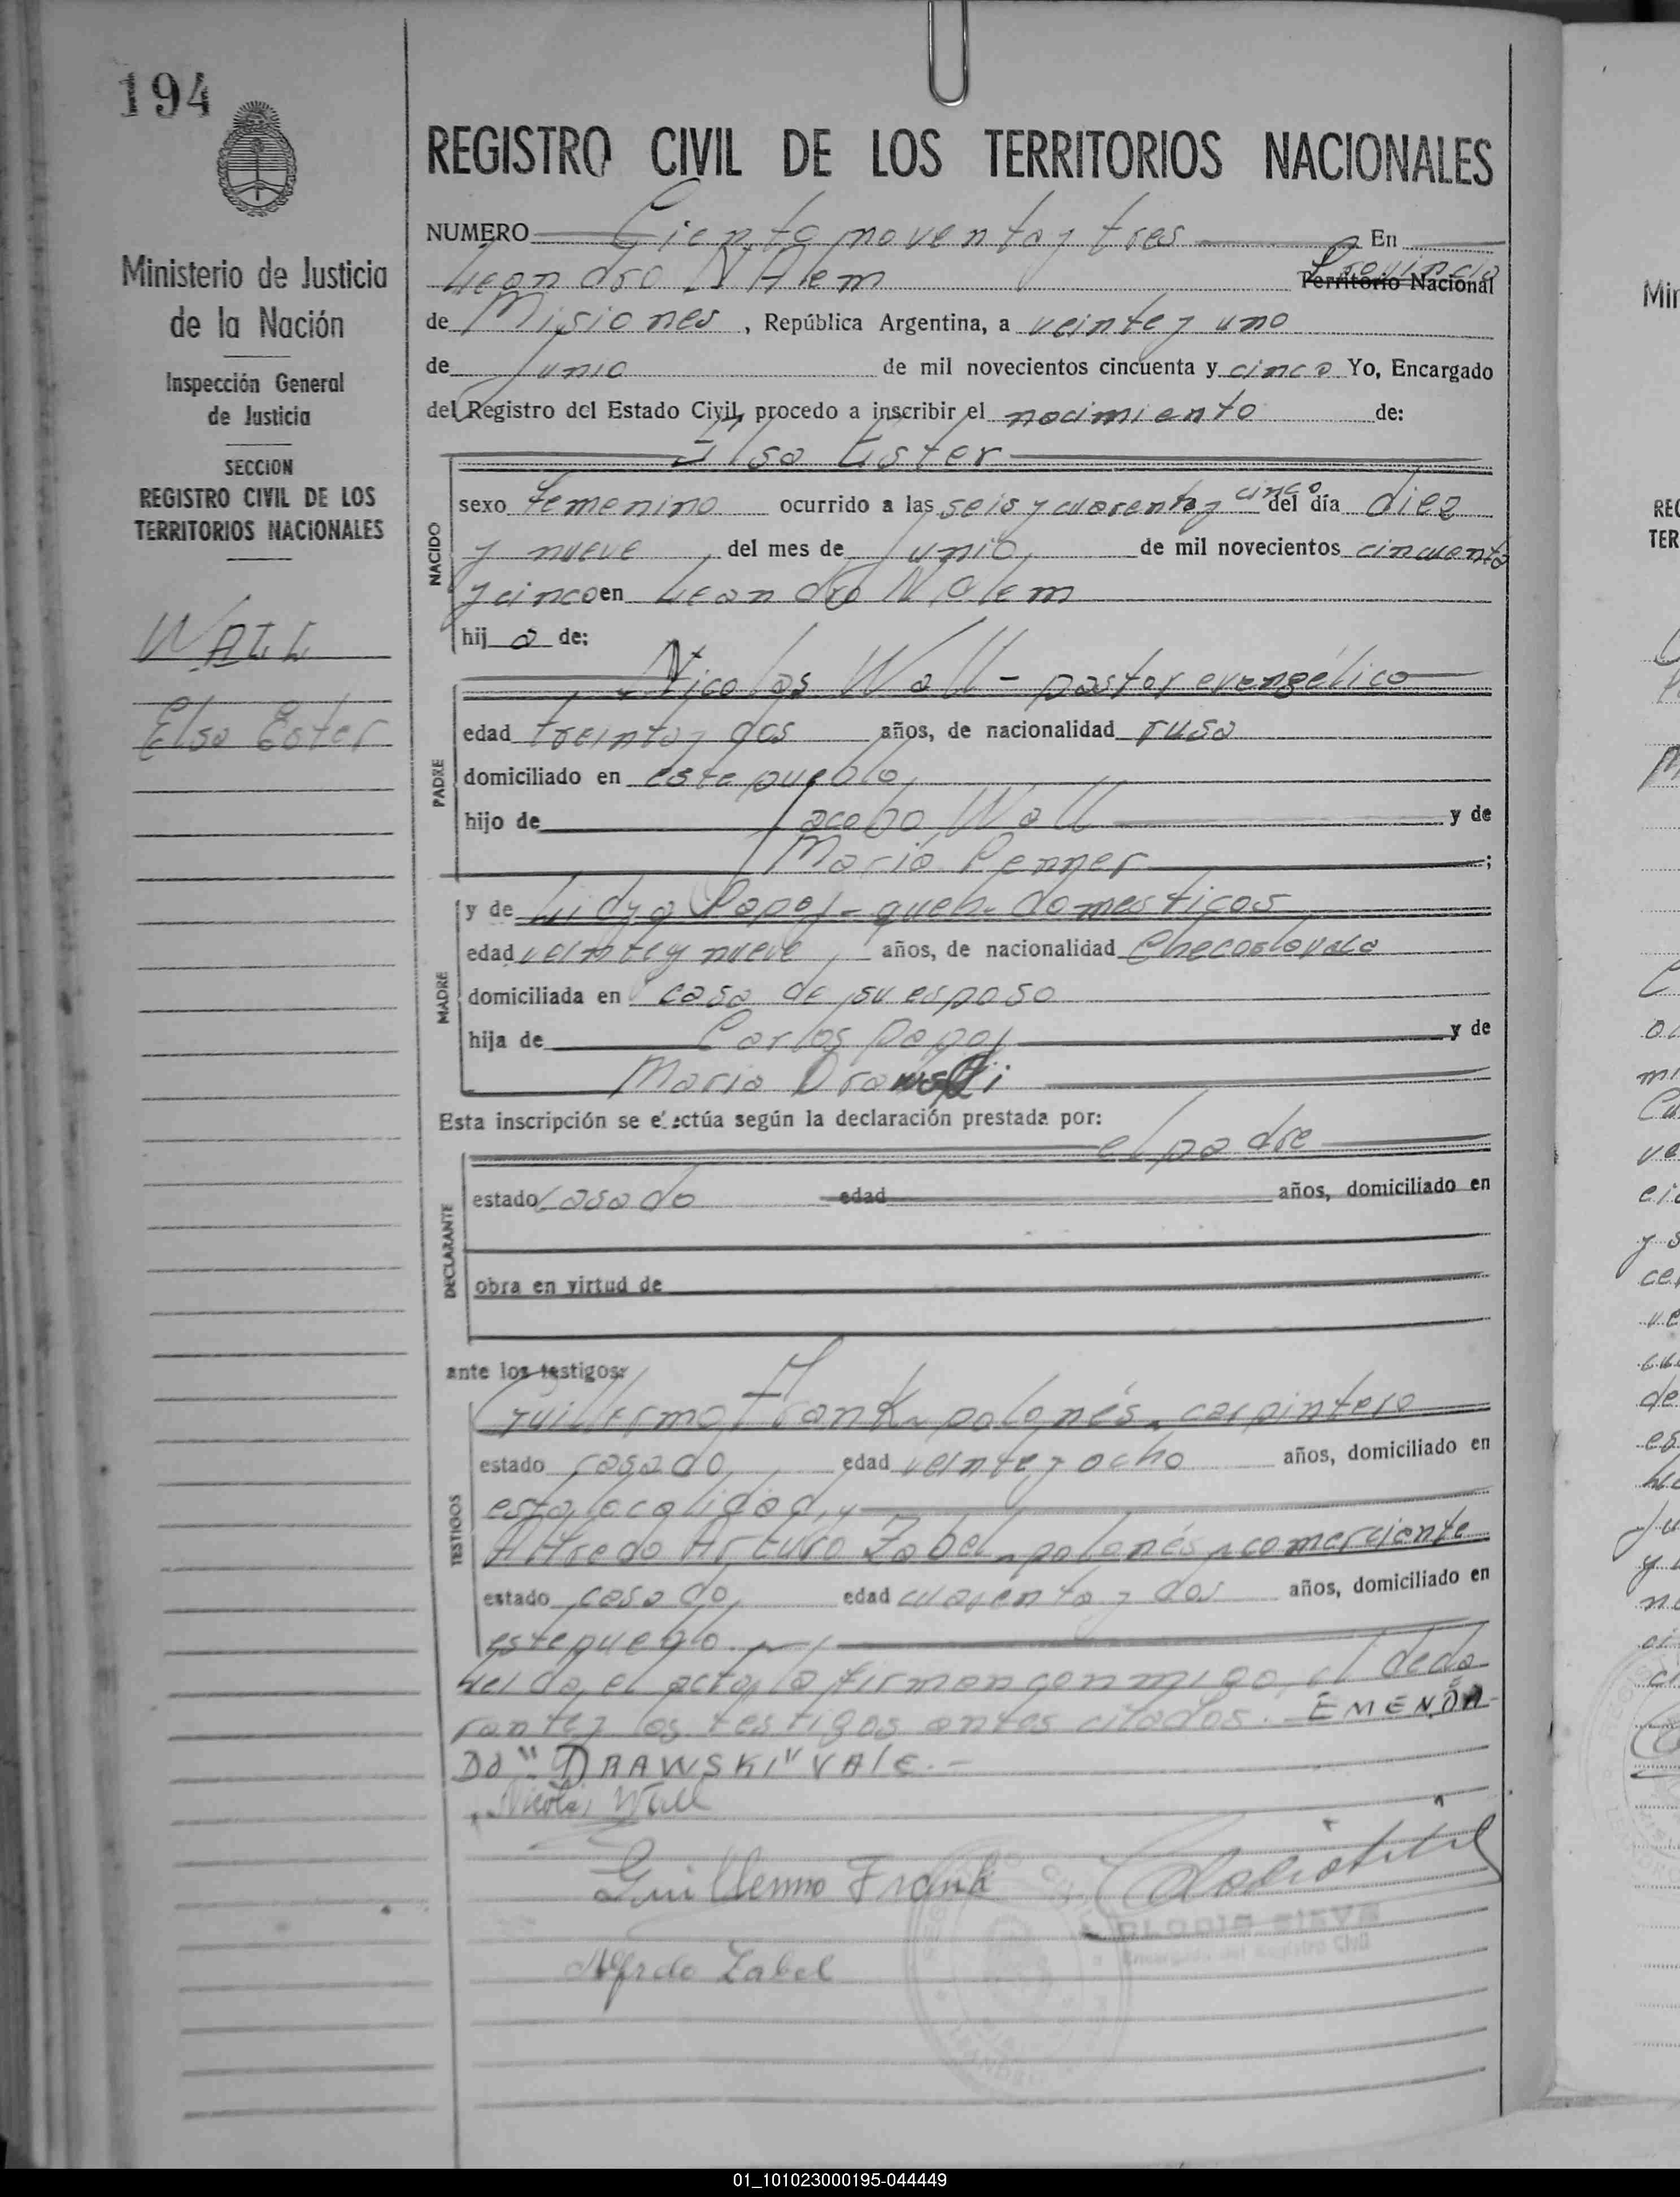 194
Ministerio de Justicia
de la Nación
Inspección General
de Justicia
SECCION
REGISTRO CIVIL DE LOS
TERRITORIOS NACIONALES
WALL
Elsa Ester
REGISTRO CIVIL DE LOS TERRITORIOS NACIONALES
NUMERO Ciento noventa y tres En
Leandro N Alem Provincia Territorio Nacional
de Misiones, República Argentina, a veinte y uno
de Junio de mil novecientos cincuenta y cinco Yo, Encargado
del Registro del Estado Civil, procedo a inscribir el nacimiento de:
Elsa Ester
NACIDO
sexo femenino ocurrido a las seis y cuarenta y cinco del día diez
y nueve, del mes de Junio, de mil novecientos cincuenta
y cinco en Leandro N Alem
hij a de:
Nicolas Wall - pastor evengélico
PADRE
edad treinta y dos años, de nacionalidad rusa
domiciliado en este pueblo,
hijo de Jacobo Wall y de
Maria Penner;
y de Lidya Popoj - queh. domesticos
MADRE
edad veinte y nueve, años, de nacionalidad Checoslovaca
domiciliada en casa de su esposo
hija de Carlos Popoj y de
Maria Drawski
Esta inscripción se efectúa según la declaración prestada por:
el padre
DECLARANTE
estado casado edad años, domiciliado en
obra en virtud de
ante los testigos:
Guillermo Frank - polonés - carpintero
TESTIGOS
estado casado, edad veinte y ocho años, domiciliado en
esta localidad, y
Alfredo Arturo Zabel - polonés, comerciente
estado casado, edad cuarenta y dos años, domiciliado en
este pueblo
Leida, el acta, la firman conmigo, el decla
rante y los testigos antes citados. EMENDA
DO "DRAWSKI" VALE.-
Nicolai Wall
Guillermo Frank
Alfredo Zabel
Encargado del Registro Civil
Min
REG
TER
01_101023000195-044449